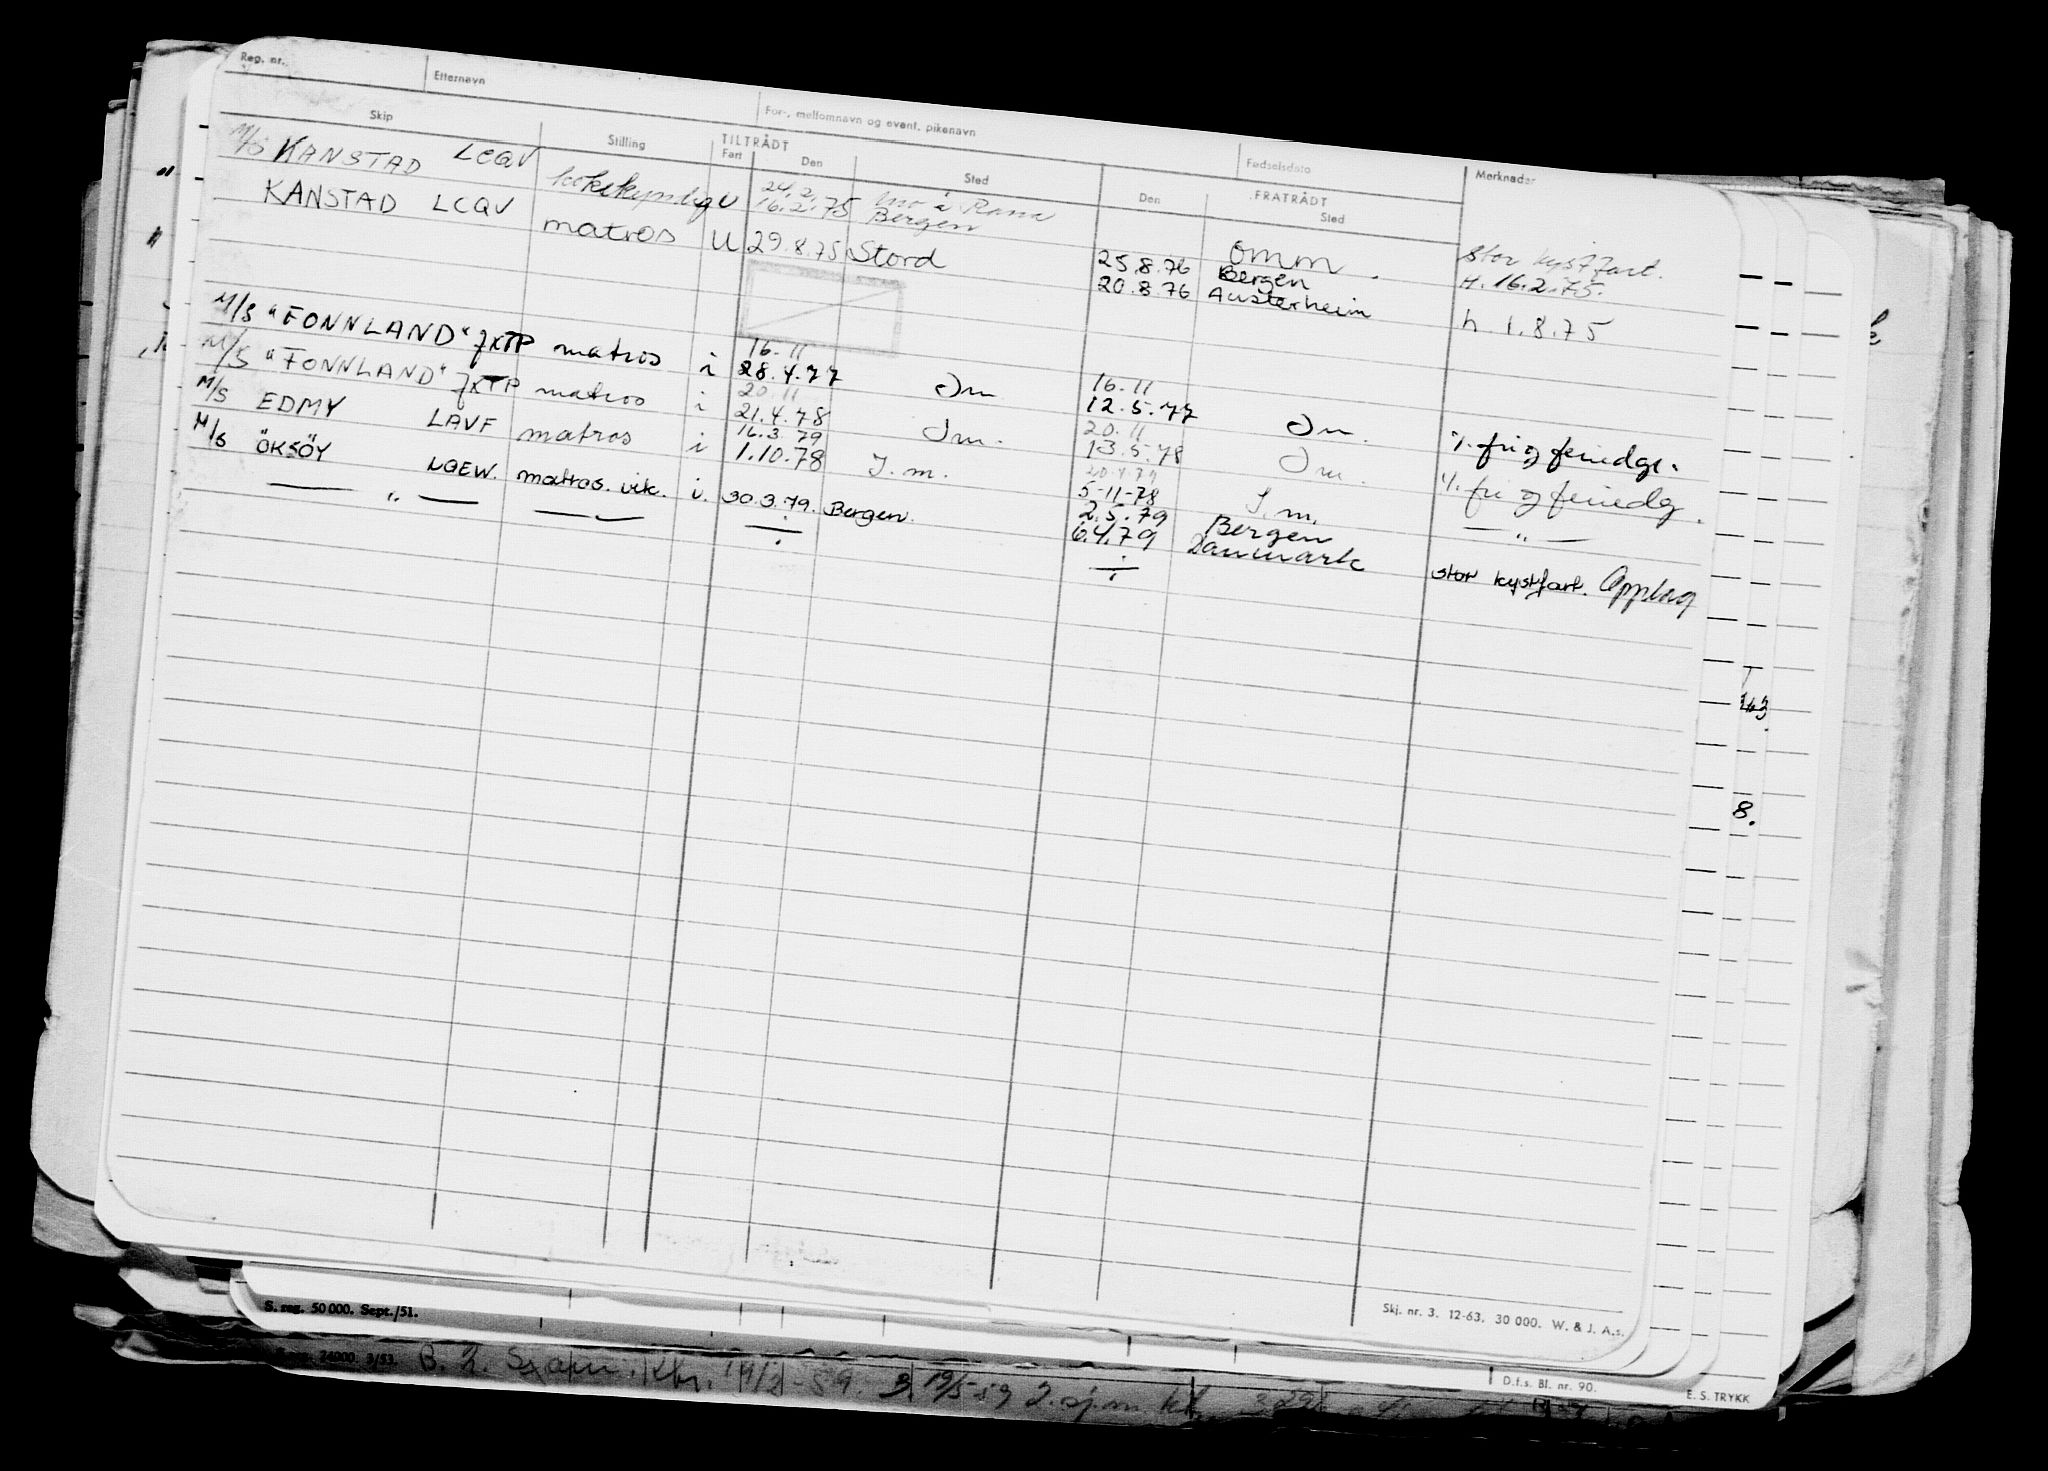 Reg. nr. Etternavn For-, mellomnavn og event. pikenavn Fødselsdato
Skip Stilling TILTRÅDT Fart Den Sted Den FRATRÅDT Sted Merknader
M/S KANSTAD LCQV kokekyndig U 24.2. 16.2.75 Mo i Rana Bergen omm. stor kystfart.
25.8.76 Bergen H. 16.2.75.
KANSTAD LCQV matros U 29.8.75 Stord 20.8.76 Austerheim h. 1.8.75
M/S "FONNLAND" JXTP matros i 16.11 28.4.77 Jm 16.11 12.5.77 Jm. %. fri og feriedge.
M/S "FONNLAND" JXTP matros i 20.11 21.4.78 Jm. 20.11 13.5.78 Jm. %. fri og feriedg.
M/S EDMY LAVF matros i 16.3.79 1.10.78 I.m. 20.4.79 5-11-78 I.m. — " —
M/S ÖKSÖY matros. vik. i. 30.3.79. Bergen. 2.5.79 Bergen
6.4.79 Danmark stor kystfart. Opplag
— " —
Skj. nr. 3. 12-63. 30 000. W. & J. A.s.
S. reg. 50 000. Sept./51.
24000. 3/53.
19/5-59
D.f.s. Bl. nr. 90.
E. S. TRYKK
8.